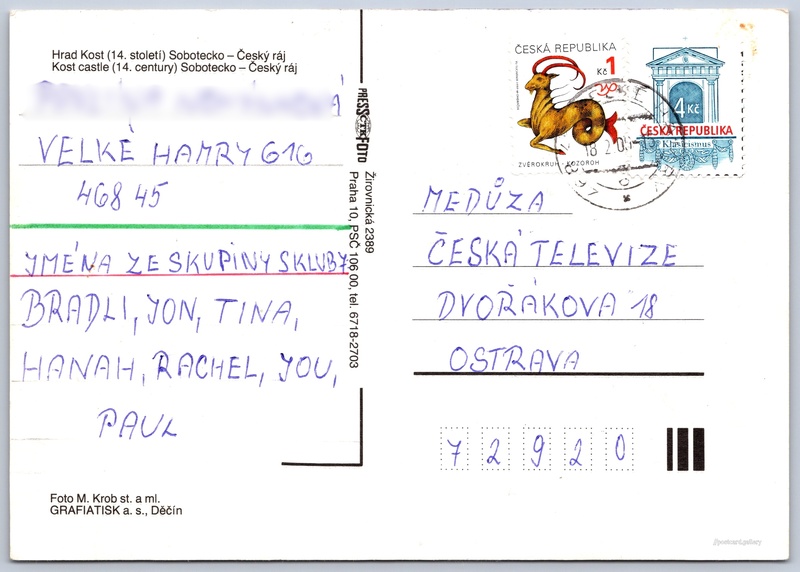 Hrad Kost (14. století) Sobotecko – Český ráj
Kost castle (14. century) Sobotecko – Český ráj
VELKÉ HAMRY 616
468 45
JMÉNA ZE SKUPINY S KLUB 7
BRADLI, JON, TINA,
HANAH, RACHEL, JOU,
PAUL
Foto M. Krob st. a ml.
GRAFIATISK a. s., Děčín
PRESSFOTO
Žirovnická 2389
Praha 10, PSČ 106 00, tel. 6718-2703
ČESKÁ REPUBLIKA
Kč 1
ZVĚROKRUH - KOZOROH
4 Kč
ČESKÁ REPUBLIKA
Klasicismus
MEDŮZA
ČESKÁ TELEVIZE
DVOŘÁKOVA 18
OSTRAVA
72920